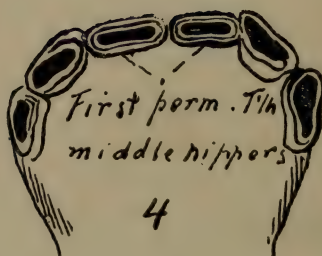 First perm. T'th
middle nippers
4